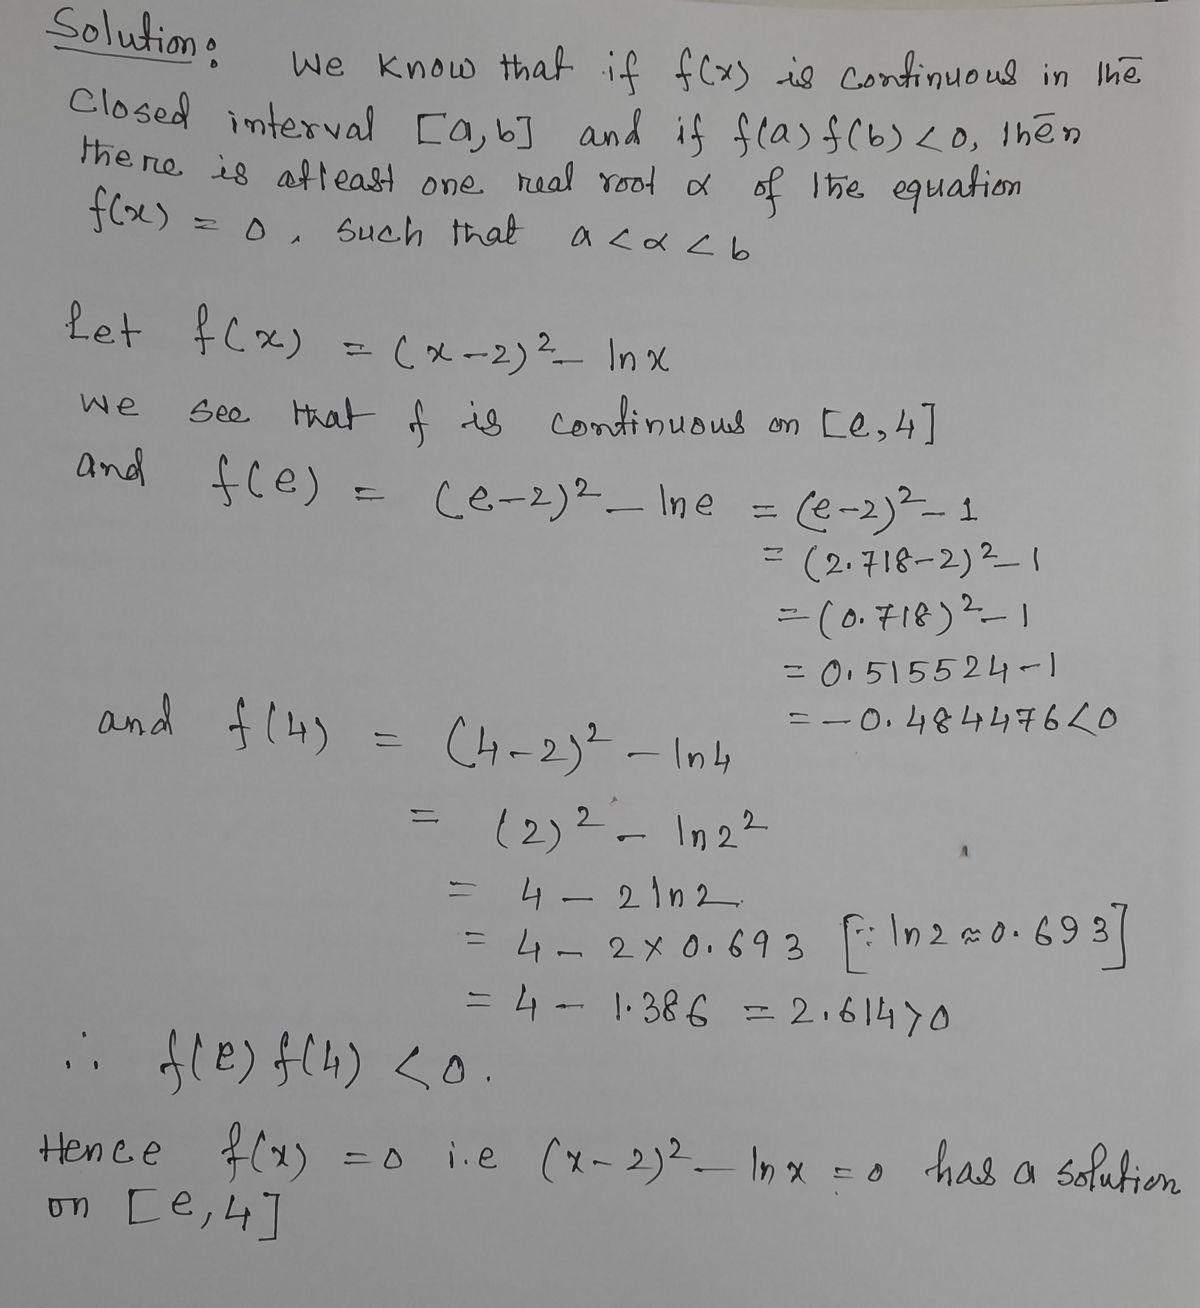 Solution: We know that if f(x) is continuous in the
closed interval [a,b] and if f(a) f(b) < 0, then
there is atleast one real root α of the equation
f(x) = 0, such that a < α < b
Let f(x) = (x-2)² - ln x
we see that f is continuous on [e,4]
and f(e) = (e-2)² - ln e = (e-2)² - 1
= (2.718-2)² - 1
= (0.718)² - 1
= 0.515524 - 1
= -0.484476 < 0
and f(4) = (4-2)² - ln 4
= (2)² - ln 2²
= 4 - 2 ln 2
= 4 - 2 × 0.693 [∵ ln 2 ≈ 0.693]
= 4 - 1.386 = 2.614 > 0
∴ f(e) f(4) < 0.
Hence f(x) = 0 i.e (x-2)² - ln x = 0 has a solution
on [e,4]